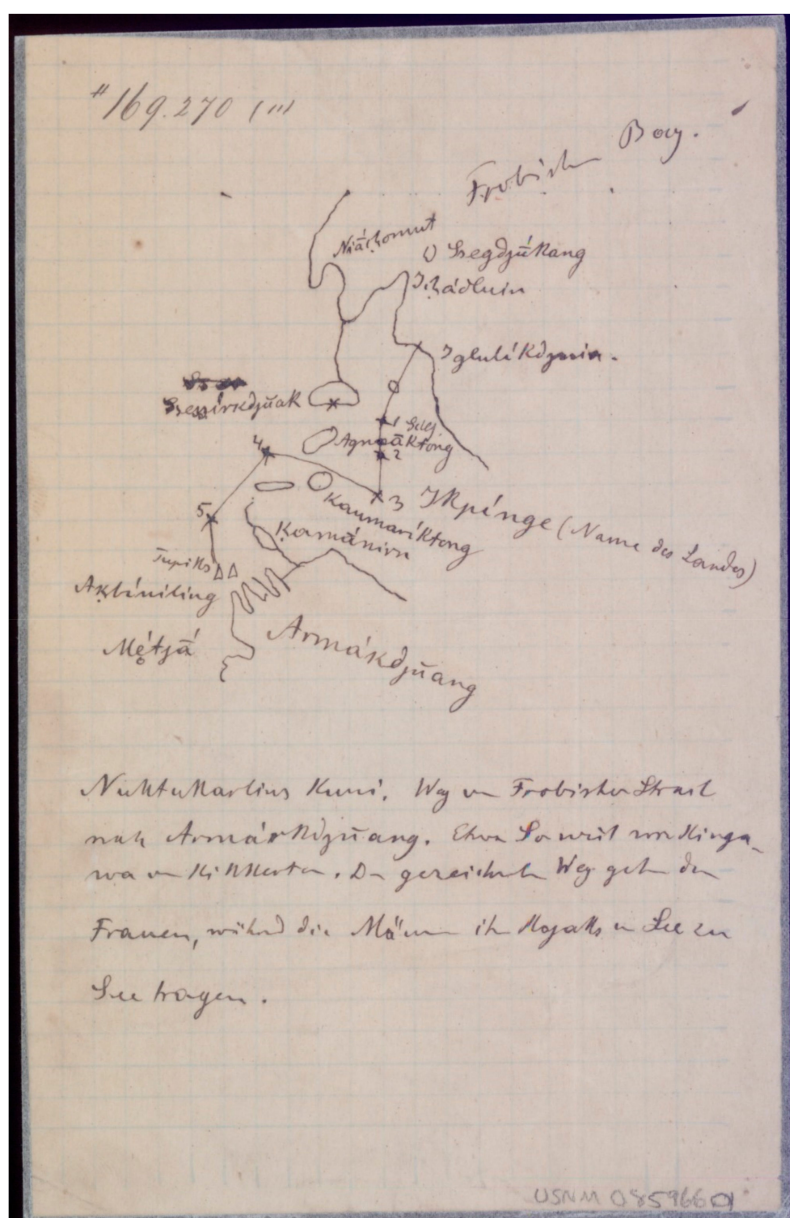 # 169.270 (III)
Frobisher Bay.
Niăχomut
Ssegdjūkang
Iχáđluin
Iglulíkdjuin.
Ssessirkdjuak
1
Agnaūktōng
2
4
3
Ikpínge (Name des Landes)
Kaumaniktong
5
Kormánirn
Tupiks
Akbíniling
Métjá
Armákdjuang
Kuni. Weg von Frobisher Strait
nach Armákdjuang. Etwa so weit von Kinga-
wa von Kikkerton. Den gezeichneten Weg gehen die
Frauen, während die Männer ihre Kajaks von See zu
See tragen.
USNM 085966 01